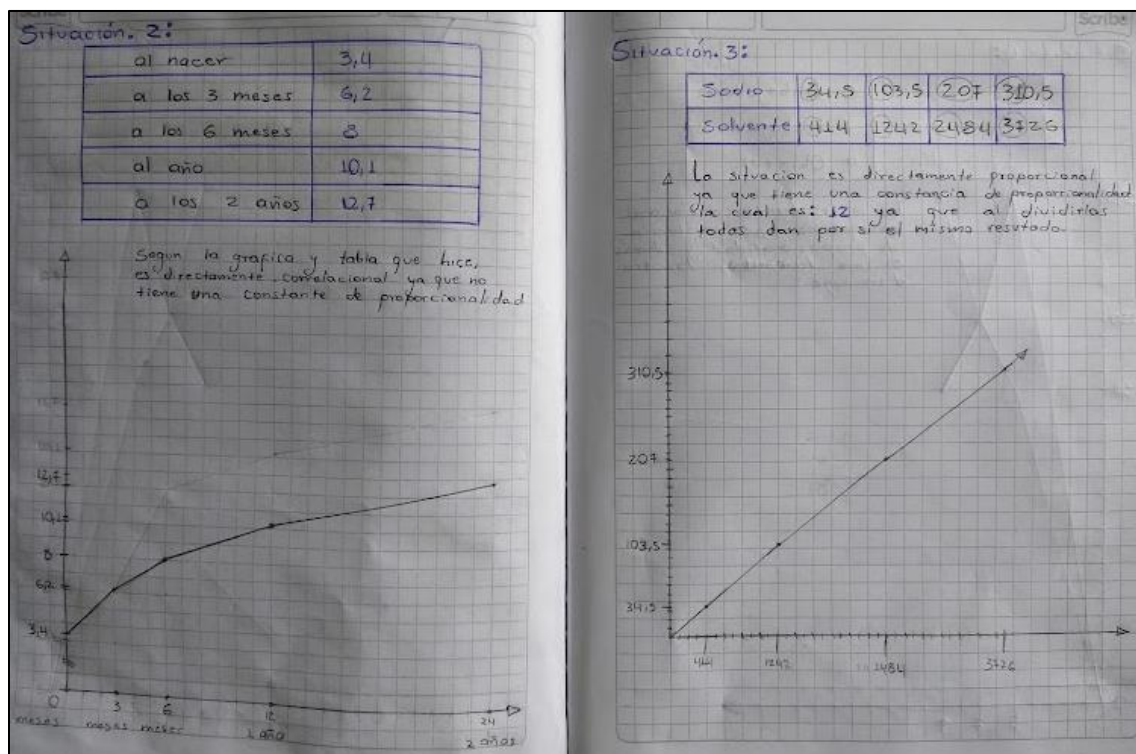 Situación. 2:
al nacer 3,4
a los 3 meses 6,2
a los 6 meses 8
al año 10,1
a los 2 años 12,7
Segun la grafica y tabla que hice,
es directamente correlacional ya que no
tiene una constante de proporcionalidad
12,7
10,1
8
6,2
3,4
0 3 6 12 24
meses meses meses 1 año 2 años
Scribe
Situación. 3:
Sodio 34,5 103,5 207 310,5
Solvente 414 1242 2484 3726
La situación es directamente proporcional
ya que tiene una constancia de proporcionalidad
la cual es: 12 ya que al dividirlas
todas dan por si el mismo resutado.
310,5
207
103,5
34,5
414 1242 2484 3726